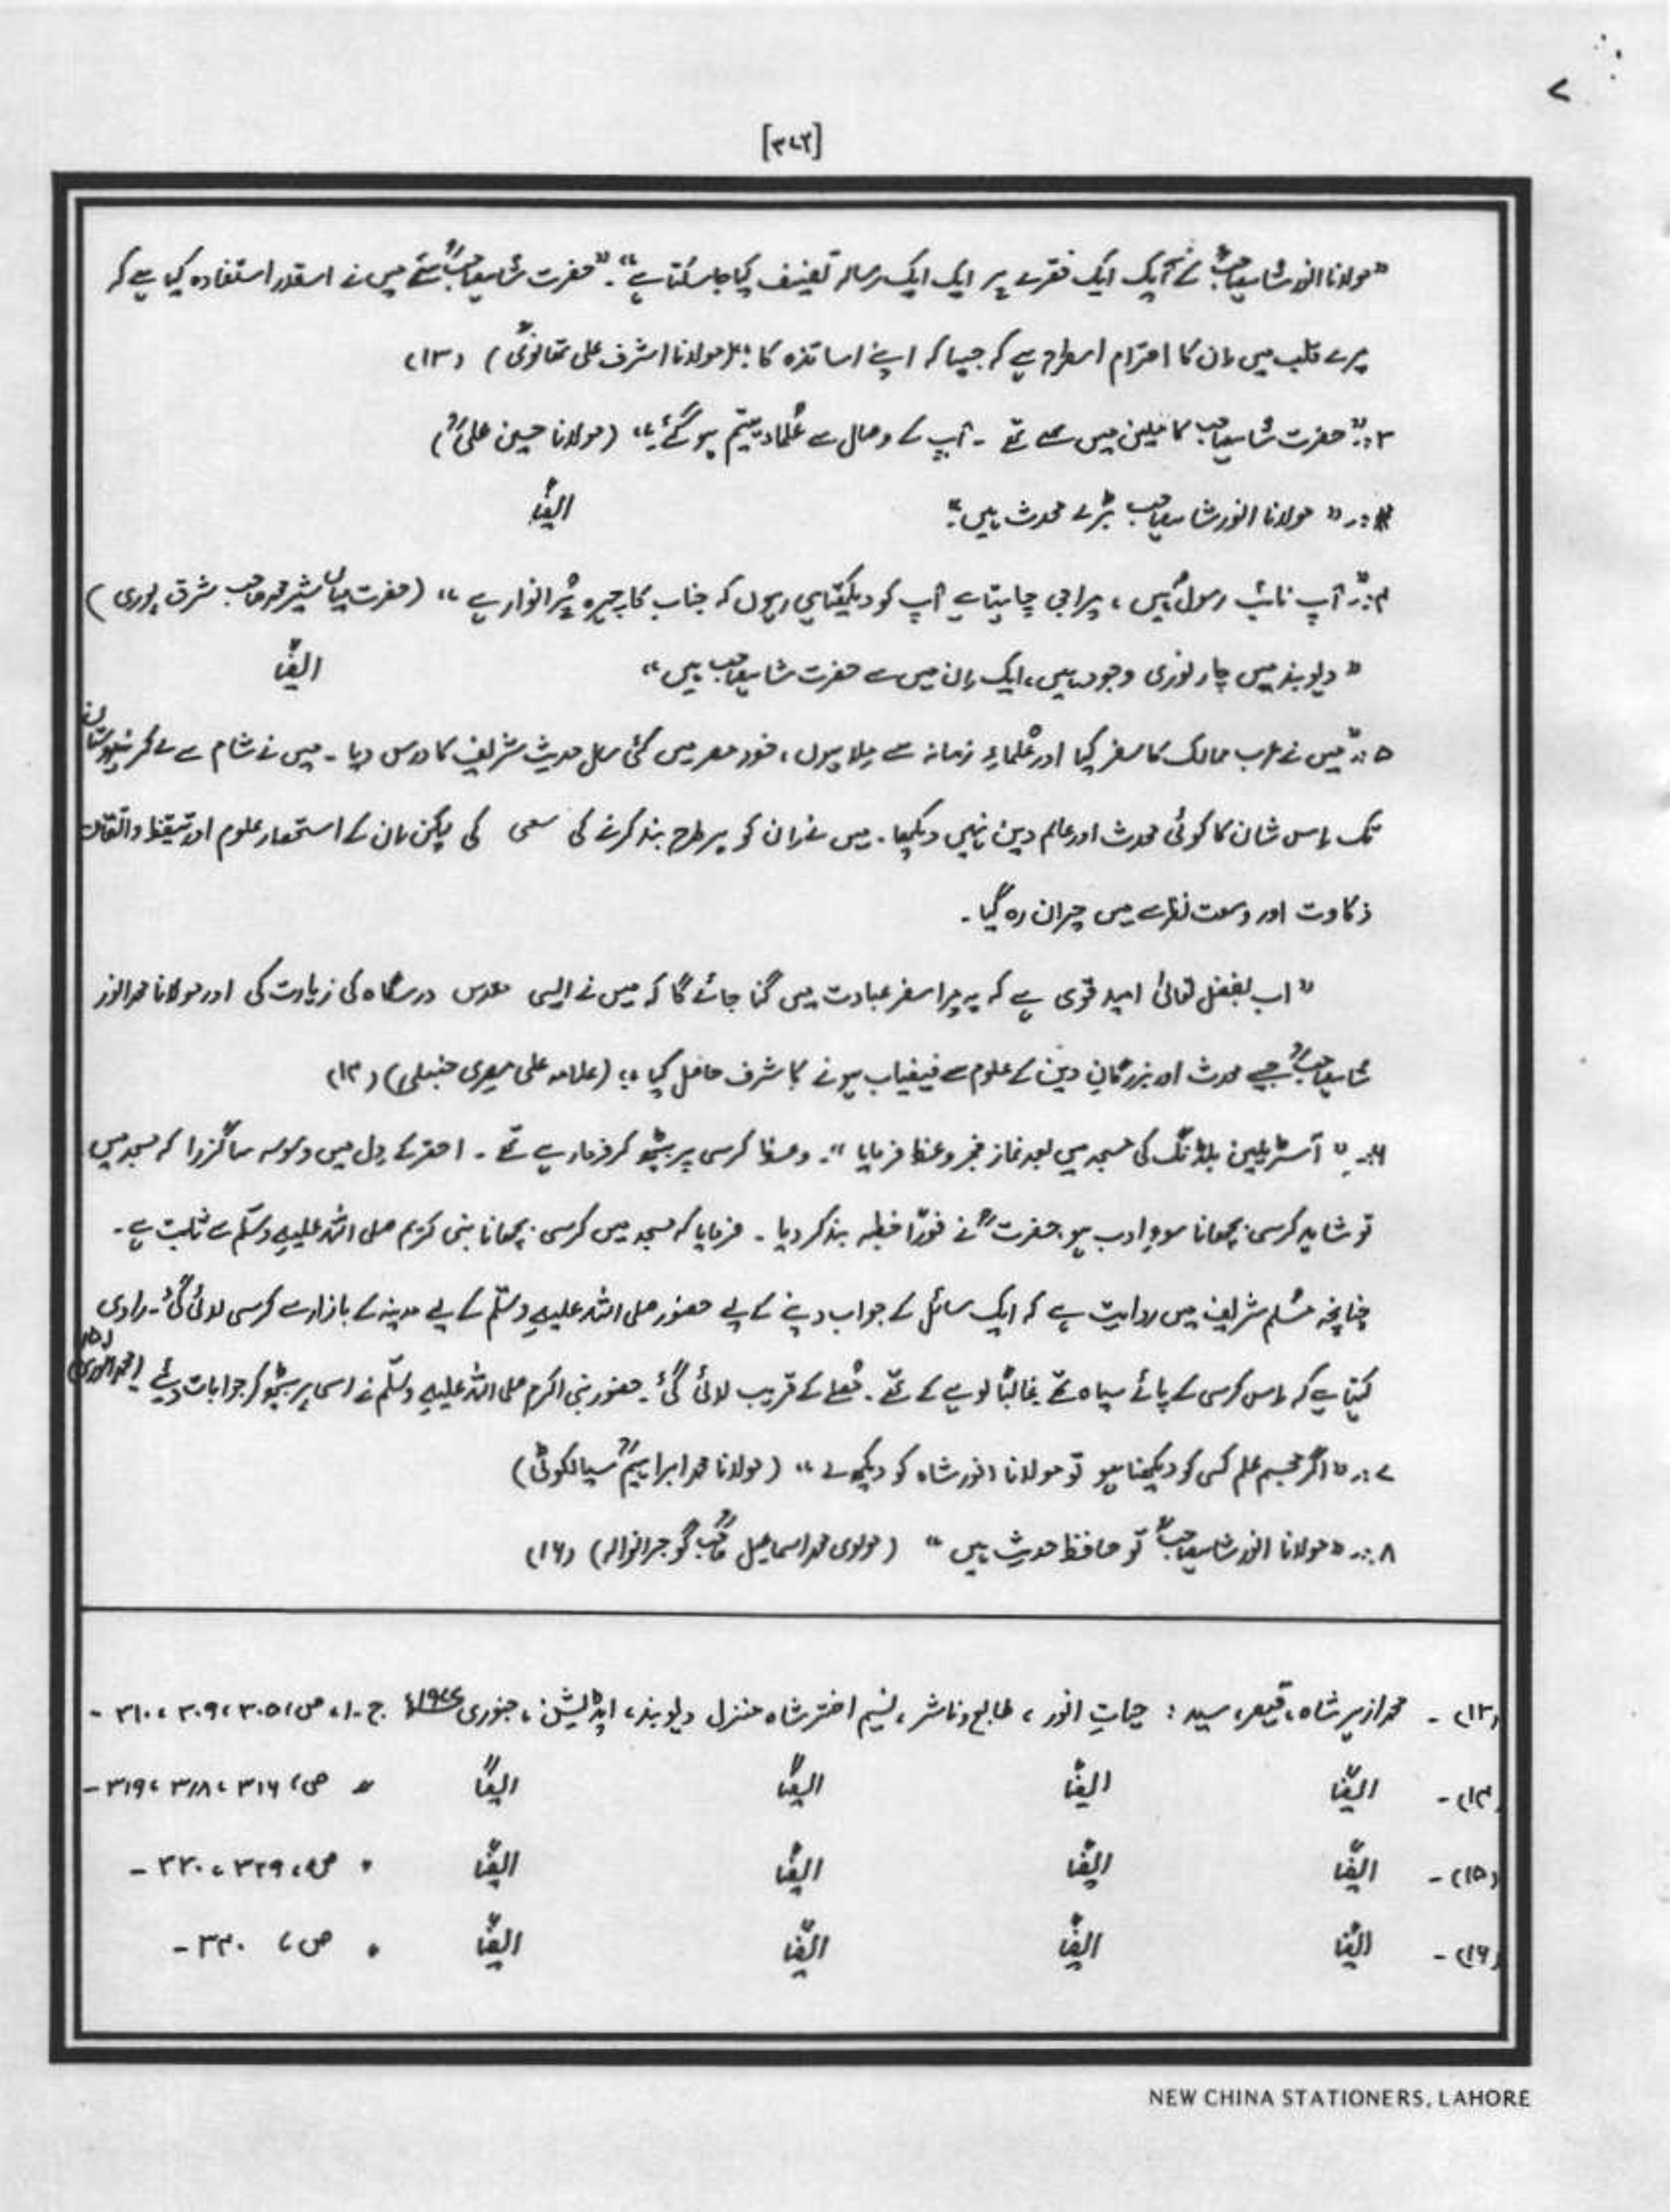 ۷
[۳۷۲]
"مولانا انور شاہ صاحبؒ کے ایک ایک فقرے پر ایک ایک رسالہ تصنیف کیا جا سکتا ہے"۔ "حضرت شاہ صاحبؒ سے میں نے اسقدر استفادہ کیا ہے کہ
میرے قلب میں ان کا احترام اسطرح ہے کہ جیسا کہ اپنے اساتذہ کا"۔ (مولانا اشرف علی تھانویؒ) (۱۳)
۳:۔ "حضرت شاہ صاحب کاملین میں سے تھے ۔ آپ کے وصال سے عُلماء یتیم ہو گئے۔" (مولانا حسین علیؒ)
:۔ "مولانا انور شاہ صاحب بڑے محدث ہیں"۔ ایضًا
۴:۔ "آپ نائب رسولؐ ہیں ، میرا جی چاہتا ہے آپ کو دیکھتا ہی رہوں کہ جناب کا چہرہ پُر انوار ہے" (حضرت میاں شیر محمد صاحب شرق پوری)
"دیوبند میں چار نوری وجود ہیں، ایک اِن میں سے حضرت شاہ صاحب ہیں" ایضًا
۵:۔ "میں نے عرب ممالک کا سفر کیا اور عُلماءِ زمانہ سے مِلا ہوں ، خود مصر میں کئی سال حدیث شریف کا درس دیا ۔ میں نے شام سے لے کر ہندوستان
تک اِس شان کا کوئی محدث اور عالم دین نہیں دیکھا۔ میں نے اِن کو ہر طرح بند کرنے کی سعی کی لیکن اِن کے استحضار علوم اور تیقظ و اتقان
ذکاوت اور وسعت نظر سے میں حیران رہ گیا۔
"اب بفضل تعالیٰ امید قوی ہے کہ یہ میرا سفر عبادت میں گنا جائے گا کہ میں نے ایسی مقدس درسگاہ کی زیارت کی اور مولانا محمد انور
شاہ صاحبؒ جیسے محدث اور بزرگانِ دین کے علوم سے فیضیاب ہونے کا شرف حاصل کیا"۔ (علامہ علی مصری حنبلی) (۱۴)
۶:۔ "آسٹریلین بلڈنگ کی مسجد میں بعد نماز فجر وعظ فرمایا"۔ وعظ کرسی پر بیٹھ کر فرما رہے تھے ۔ احقر کے دِل میں وسوسہ سا گزرا کہ مسجد میں
تو شاید کرسی بچھانا سوءِ ادب ہو حضرتؒ نے فورًا خطبہ بند کر دیا ۔ فرمایا کہ مسجد میں کرسی بچھانا نبی کریم صلی اللہ علیہِ وسلّم سے ثابت ہے۔
چنانچہ مُسلم شریف میں روایت ہے کہ ایک سائل کے جواب دینے کے لیے حضور صلی اللہ علیہِ وسلّم کے لیے مدینہ کے بازار سے کرسی لائی گئی۔ راوی
کہتا ہے کہ اِس کرسی کے پائے سیاہ تھے غالبًا لوہے کے تھے۔ مُصلے کے قریب لائی گئی۔ حضور نبی اکرم صلی اللہ علیہِ وسلّم نے اسی پر بیٹھ کر جوابات دیئے (محمد انوری) (۱۵)
۷:۔ "اگر مجسم علم کسی کو دیکھنا ہو تو مولانا انور شاہ کو دیکھ لے" (مولانا محمد ابراہیمؒ سیالکوٹی)
۸:۔ "مولانا انور شاہ صاحبؒ تو حافظ حدیث ہیں" (مولوی محمد اسماعیل صاحبؒ گوجرانوالہ) (۱۶)
(۱۳)۔ محمد ازہر شاہ، قیصر، سید : حیاتِ انور ، طابع و ناشر ، نسیم اختر شاہ منزل دیوبند، ایڈیشن ، جنوری ۱۹۷۷ء ج۔۱، ص، ۳۰۵، ۳۰۹، ۳۱۰۔
(۱۴)۔ ایضًا ایضًا ایضًا ایضًا " ص، ۳۱۶، ۳۱۸، ۳۱۹۔
(۱۵)۔ ایضًا ایضًا ایضًا ایضًا " ص، ۳۲۹، ۳۳۰۔
(۱۶)۔ ایضًا ایضًا ایضًا ایضًا " ص، ۳۳۰۔
NEW CHINA STATIONERS, LAHORE